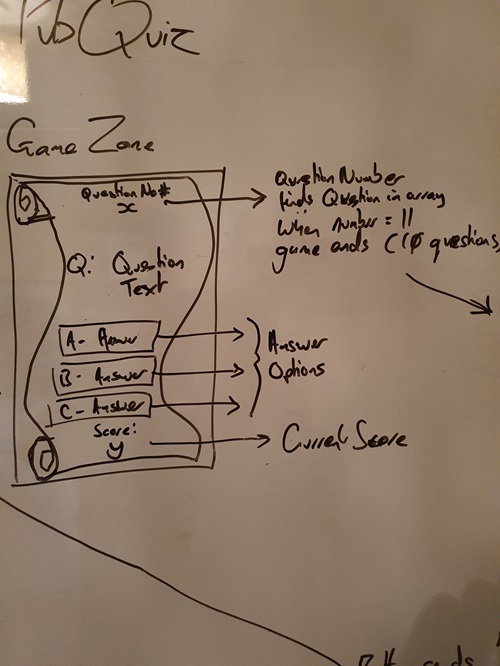 Pub Quiz
Game Zone
Question No#
x
Q: Question
Text
A - Answer
B - Answer
C - Answer
Score:
y
Question Number
finds Question in array
When number = 11
game ends (10 questions)
Answer
Options
Current Score